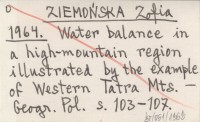 ZIEMOŃSKA Zofia
1964. Water balance in
a high-mountain region
illustrated by the example
of Western Tatra Mts. —
Geogr. Pol. s. 103-107.